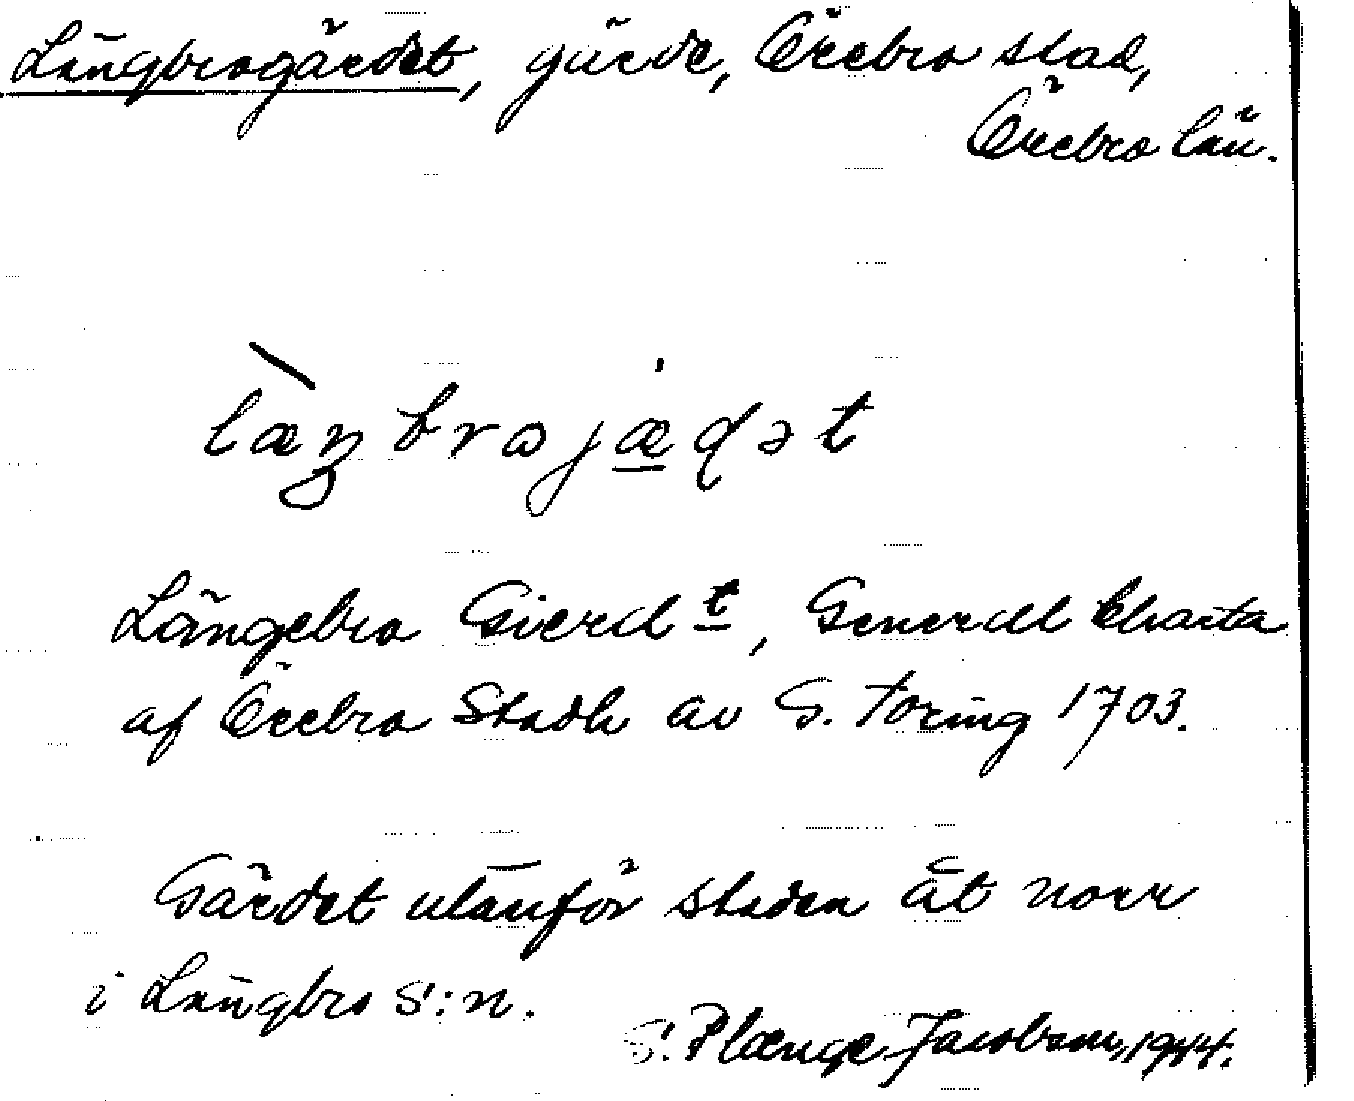 Längbrogärdet, gärde, Örebro stad,
Örebro län.
læŋbrojæḍət
Längebro Gierd t, Generall Charta
af Örebro Stadh av G. Toring 1703.
Gärdet utanför staden åt norr
i Längbro s:n.
S. Plænge Jacobson, 1944.